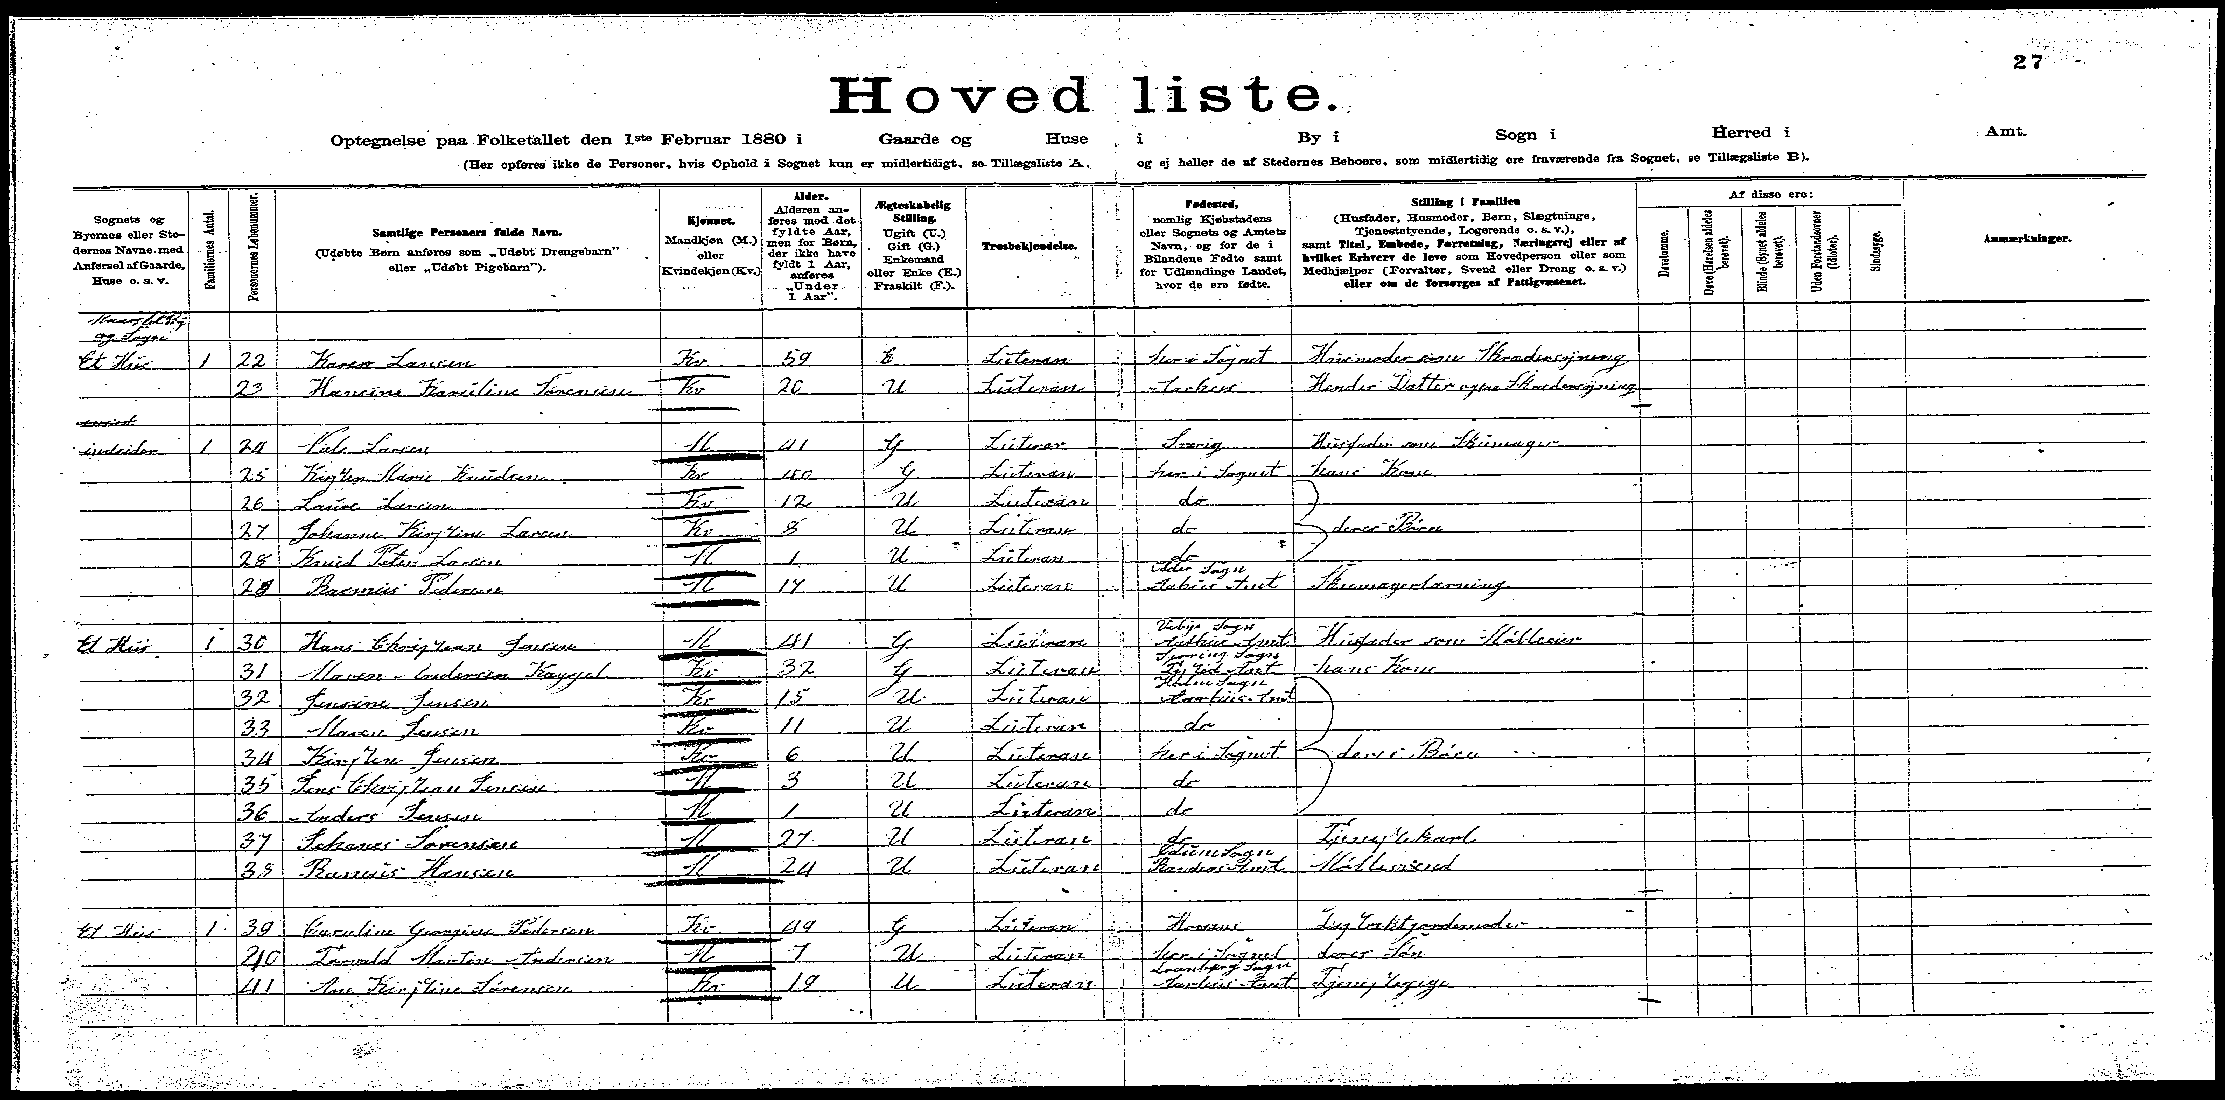 27
Hoved liste.
Optegnelse paa Folketallet den 1ste Februar 1880 i Gaarde og Huse i By i Sogn i Herred i Amt.
(Her opføres ikke de Personer, hvis Ophold i Sognet kun er midlertidigt, se Tillægsliste A, og ej heller de af Stedernes Beboere, som midlertidig ere fraværende fra Sognet, se Tillægsliste B).
Sognets og Byernes eller Stedernes Navne med Anførsel af Gaarde, Huse o. s. v.
Familiernes Antal.
Personernes Løbenummer.
Samtlige Personers fulde Navn.
(Udøbte Børn anføres som „Udøbt Drengebarn" eller „Udøbt Pigebarn").
Kjønnet.
Mandkjøn (M.) eller Kvindekjøn (Kv.)
Alder.
Alderen anføres med det fyldte Aar, men for Børn, der ikke have fyldt 1 Aar, anføres „Under 1 Aar".
Ægteskabelig Stilling.
Ugift (U.) Gift (G.) Enkemand eller Enke (E.) Fraskilt (F.).
Trosbekjendelse.
Fødested,
nemlig Kjøbstadens eller Sognets og Amtets Navn, og for de i Bilandene Fødte samt for Udlændinge Landet, hvor de ere fødte.
Stilling i Familien
(Husfader, Husmoder, Børn, Slægtninge, Tjenestetyende, Logerende o. s. v.),
samt Titel, Embede, Forretning, Næringsvej eller af hvilket Erhverv de leve som Hovedperson eller som Medhjælper (Forvalter, Svend eller Dreng o. s. v.) eller om de forsørges af Fattigvæsenet.
Af disse ere:
Døvstumme.
Døve (Hørelsen aldeles berøvet).
Blinde (Synet aldeles berøvet).
Uden Forstandsevner (Idioter).
Sindssyge.
Anmærkninger.
og Sogn
Et Hus 1 22 Karen Larsen Kv 59 E Luteran her i Sognet Husmoder som Skrædersyning
23 Hansine Karoline Sørensen Kv 20 U Luteran Aarhus Hendes Datter ogsaa Skrædersyning
indsider 1 24 Niels Larsen M 41 G Luteran Sverig Husfader som Skumager
25 Kirsten Marie Knudsen Kv 40 G Luteran her i Sognet hans Kone
26 Laure Larsen Kv 12 U Luteran do
27 Johanne Kirstine Larsen Kv 8 U Luteran do deres Børn
28 Knud Peter Larsen M 1 U Luteran do
29 Rasmus Pedersen M 17 U Luteran Sogn Aarhus Amt Skumagerlærning
Et Hus 1 30 Hans Christian Jensen M 41 G Luteran Viby Sogn Aarhus Amt Husfader som Møllerer
31 Maren Andersen Kaggel Kv 32 G Luteran Sogn Amt hans Kone
32 Jensine Jensen Kv 15 U Luteran Sogn Aarhus Amt
33 Maren Jensen Kv 11 U Luteran do
34 Kirstine Jensen Kv 6 U Luteran her i Sognet deres Børn
35 Jens Christian Jensen M 3 U Luteran do
36 Anders Jensen M 1 U Luteran do
37 Johanes Sørensen M 27 U Luteran do Tjenestekarl
38 Rasmus Hansen M 24 U Luteran Ødum Sogn Randers Amt Møllersvend
Et Hus 1 39 Caroline Georgine Pedersen Kv 49 G Luteran Horsens Distriktsjordemoder
40 Torvald Morten Andersen M 7 U Luteran her i Sognet deres Søn
41 Ane Kirstine Sørensen Kv 19 U Luteran Tranbjerg Sogn Aarhus Amt Tjenstepige